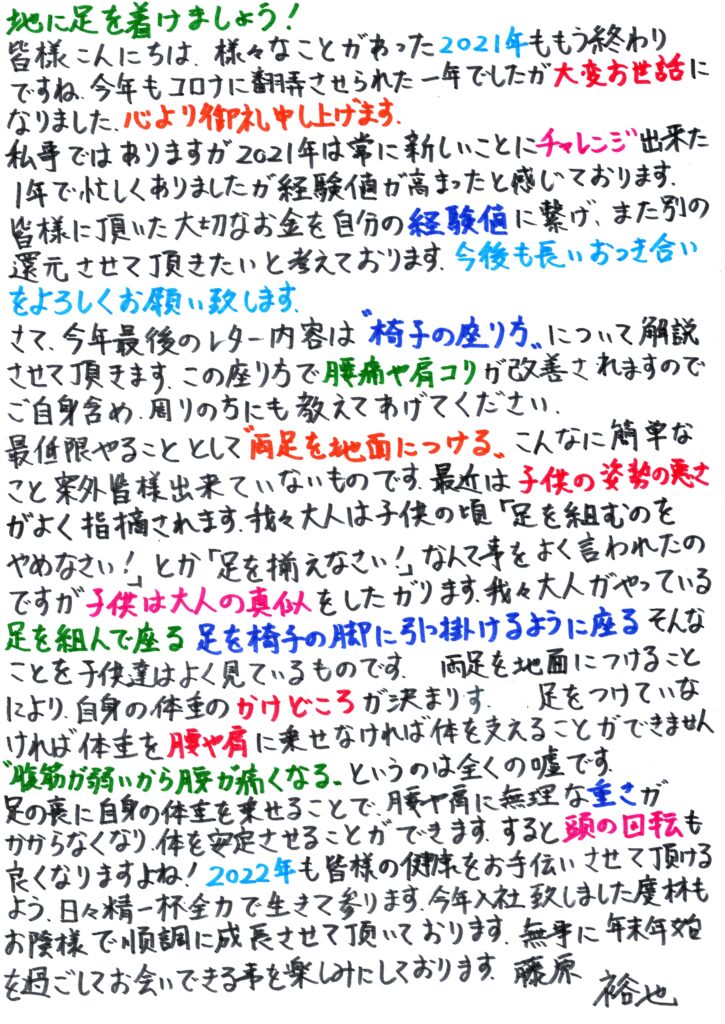 地に足を着けましょう!
皆様こんにちは、様々なことがあった2021年ももう終わり
ですね、今年もコロナに翻弄させられた一年でしたが大変お世話に
なりました、心より御礼申し上げます.
私事ではありますが2021年は常に新しいことにチャレンジ出来た
1年で忙しくありましたが経験値が高まったと感じております.
皆様に頂いた大切なお金を自分の経験値に繋げ、また別の
還元させて頂きたいと考えております.今後も長いおつき合い
をよろしくお願い致します.
さて、今年最後のレター内容は〝椅子の座り方〟について解説
させて頂きます.この座り方で腰痛や肩コリが改善されますので
ご自身含め、周りの方にも教えてあげてください.
最低限やることとして〝両足を地面につける〟こんなに簡単な
こと案外皆様出来ていないものです.最近は子供の姿勢の悪さ
がよく指摘されます.我々大人は子供の頃「足を組むのを
やめなさい!」とか「足を揃えなさい!」なんて事をよく言われたの
ですが子供は大人の真似をしたがります.我々大人がやっている
足を組んで座る 足を椅子の脚に引っ掛けるように座るそんな
ことを子供達はよく見ているものです. 両足を地面につけること
により、自身の体重のかけどころが決まりす. 足をつけていな
ければ体重を腰や肩に乗せなければ体を支えることができません
〝腹筋が弱いから腰が痛くなる〟というのは全くの嘘です.
足の裏に自身の体重を乗せることで、腰や肩に無理な重さが
かからなくなり、体を安定させることができます.すると頭の回転も
良くなりますよね!2022年も皆様の健康をお手伝いさせて頂ける
よう、日々精一杯全力で生きて参ります.今年入社致しました廣林も
お陰様で順調に成長させて頂いております.無事に年末年始
を過ごしてお会いできる事を楽しみにしております. 藤原
裕也